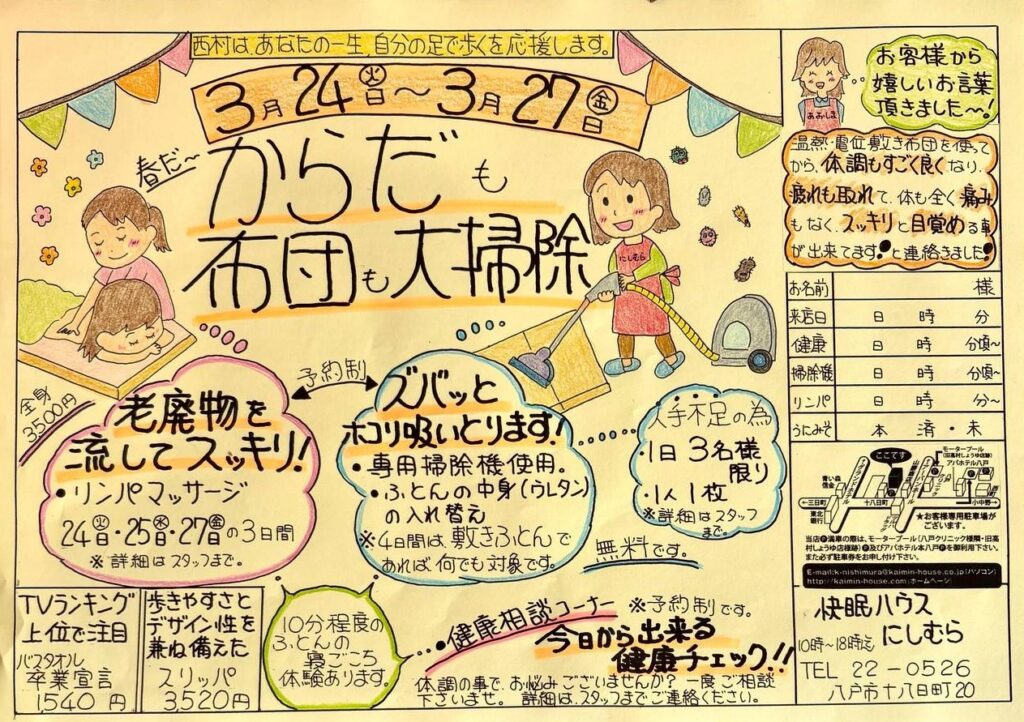 西村は、あなたの一生、自分の足で歩くを応援します。
3月24㊋日～3月27㊎日
春だ～
からだも
布団も大掃除
にしむら
全身
3500円
老廃物を
流してスッキリ!
・リンパマッサージ
24㊋日・25㊌日・27㊎日の3日間
※詳細はスタッフまで。
予約制
ズバッと
ホコリ吸いとります!
・専用掃除機使用。
・ふとんの中身(ウレタン)
の入れ替え
※4日間は、敷きふとんで
あれば何でも対象です。
人手不足の為
・1日3名様
限り
・1人1枚
※詳細はスタッフ
まで。
無料です。
TVランキング
上位で注目
バスタオル
卒業宣言
1540円
歩きやすさと
デザイン性を
兼ね備えた
スリッパ
3,520円
10分程度の
ふとんの
寝ごこち
体験あります。
・健康相談コーナー ※予約制です。
今日から出来る
健康チェック!!
体調の事で、お悩みございませんか?一度ご相談
下さいませ。詳細は、スタッフまでご連絡ください。
お客様から
嬉しいお言葉
頂きました～!
あおしま
温熱・電位敷き布団を使って
から、体調もすごく良くなり、
疲れも取れて、体も全く痛み
もなく、スッキリと目覚める事
が出来てます!と連絡きました!
お名前 様
来店日 日 時 分
健康 日 時 分頃～
掃除機 日 時 分頃～
リンパ 日 時 分～
うにみそ 本 済・未
ここです
モータープール
(旧高村しょうゆ店跡)
アパホテル八戸
青い森
信金
三日町
十八日町
小中野
東北
銀行
★お客様専用駐車場が
ございます。
当店Ⓟ満車の際は、モータープール(八戸クリニック様隣・旧高
村しょうゆ店様跡)Ⓟ及びアパホテル本八戸Ⓟを御利用下さい。
また必ず駐車券をお申し付け下さい。
E-mail:k-nishimura@kaimin-house.co.jp(パソコン)
http://kaimin-house.com(ホームページ)
快眠ハウス
にしむら
10時～18時迄
TEL 22-0526
八戸市十八日町20